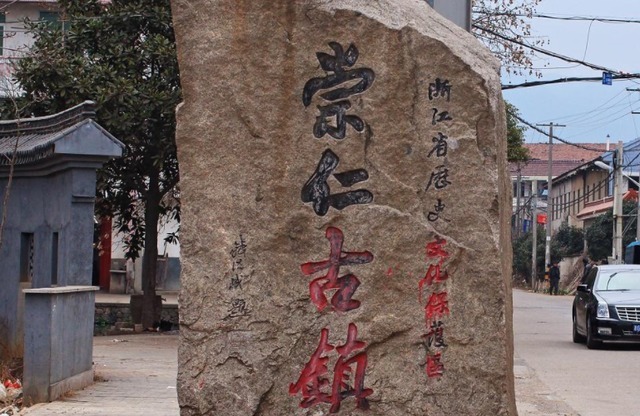 浙江省历史文化保护区
崇仁古镇